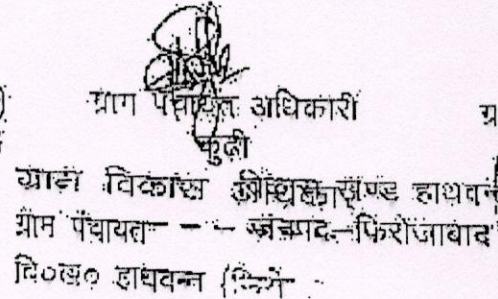 ग्राम पंचायत अधिकारी ग्र
कुढी
ग्राम विकास खण्ड हाथवन्त
ग्राम पंचायत - - जनपद-फिरोजाबाद
वि०ख० हाथवन्त (फिरो